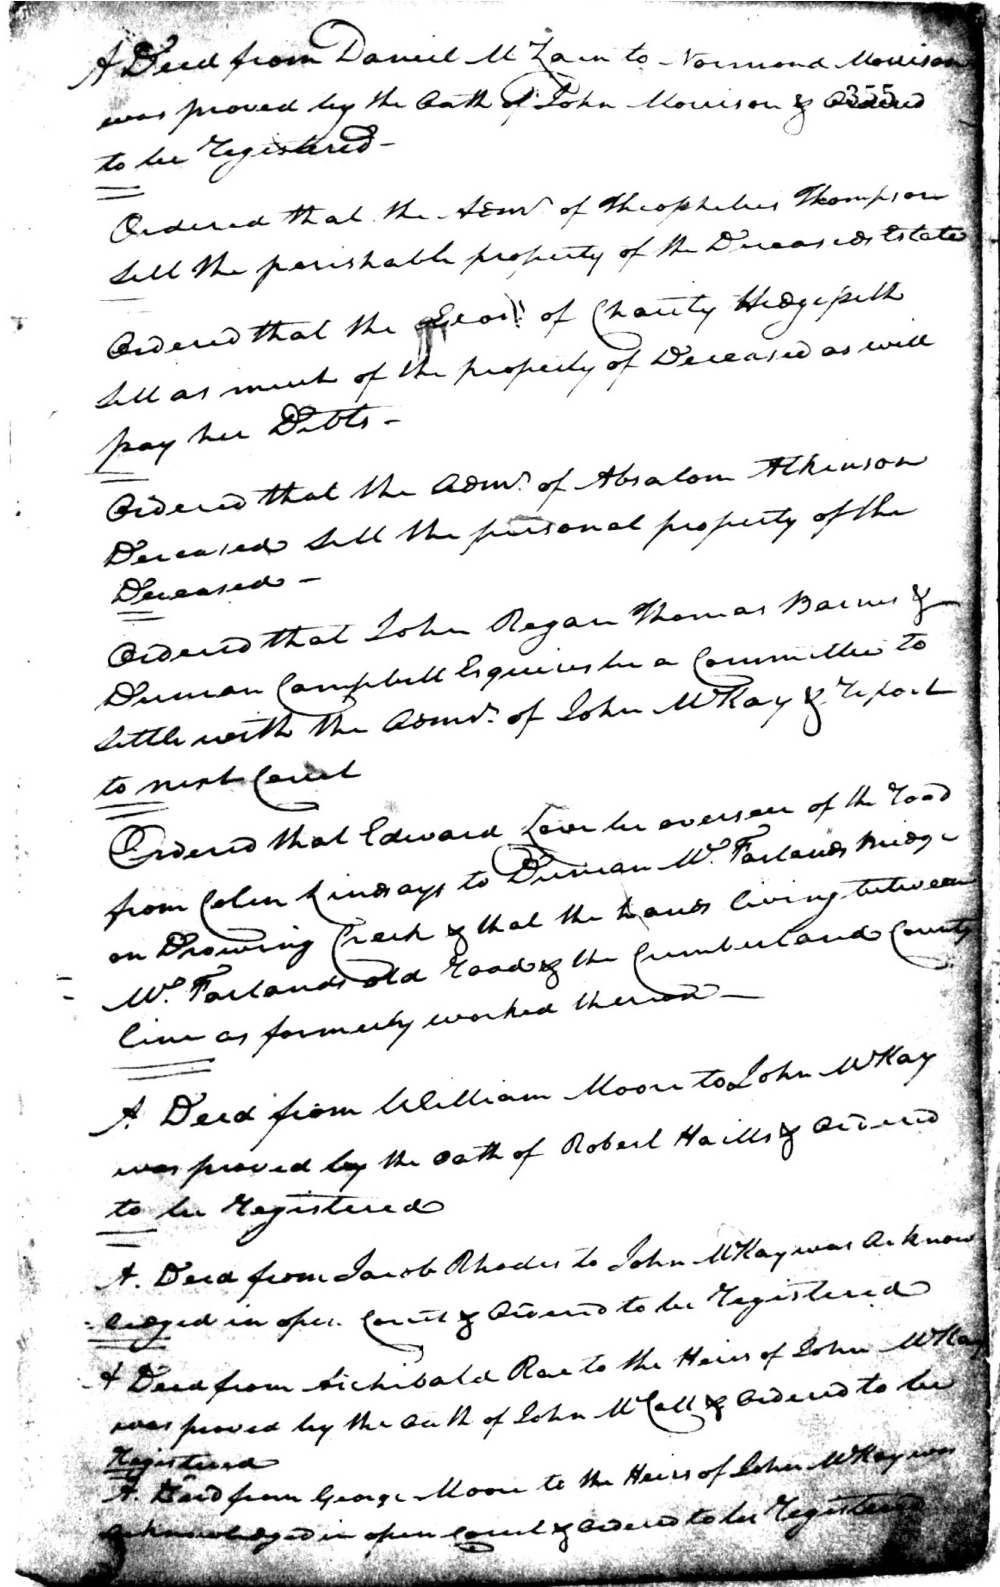 A Deed from Daniel McLain to Normond Morrison
355
was proved by the Oath of John Morrison & Ordered
to be Registered -
Ordered that the Admr. of Theophelus Thompson
Sell the perishable property of the Deceaseds Estate
Ordered that the of Charity Hedgepeth
Sell as much of the property of Deceased as will
pay her Debts -
Ordered that the Admr. of Absalom Atkinson
Deceased Sell the personal property of the
Deceased -
Ordered that John Regan Thomas Barnes &
Duncan Campbell Esquires be a Committee to
Settle with the Admr. of John McKay & Report
to next Court
Ordered that Edward Love be overseer of the road
from Colin Lindsays to Duncan McFarlands Bridge
on Drowning Creek & that the hands living between
McFarlands old road & the Cumberland County
line as formerly worked thereon -
A. Deed from William Moore to John McKay
was proved by the oath of Robert Haills & Ordered
to be Registered
A. Deed from Jacob Rhodes to John McKay was Acknow
ledged in open Court & Ordered to be Registered
A Deed from Archibald Rae to the Heirs of John McKay
was proved by the Oath of John McCall & Ordered to be
Registered
A. Deed from George Moore to the Heirs of John McKay was
acknowledged in open Court & Ordered to be Registered